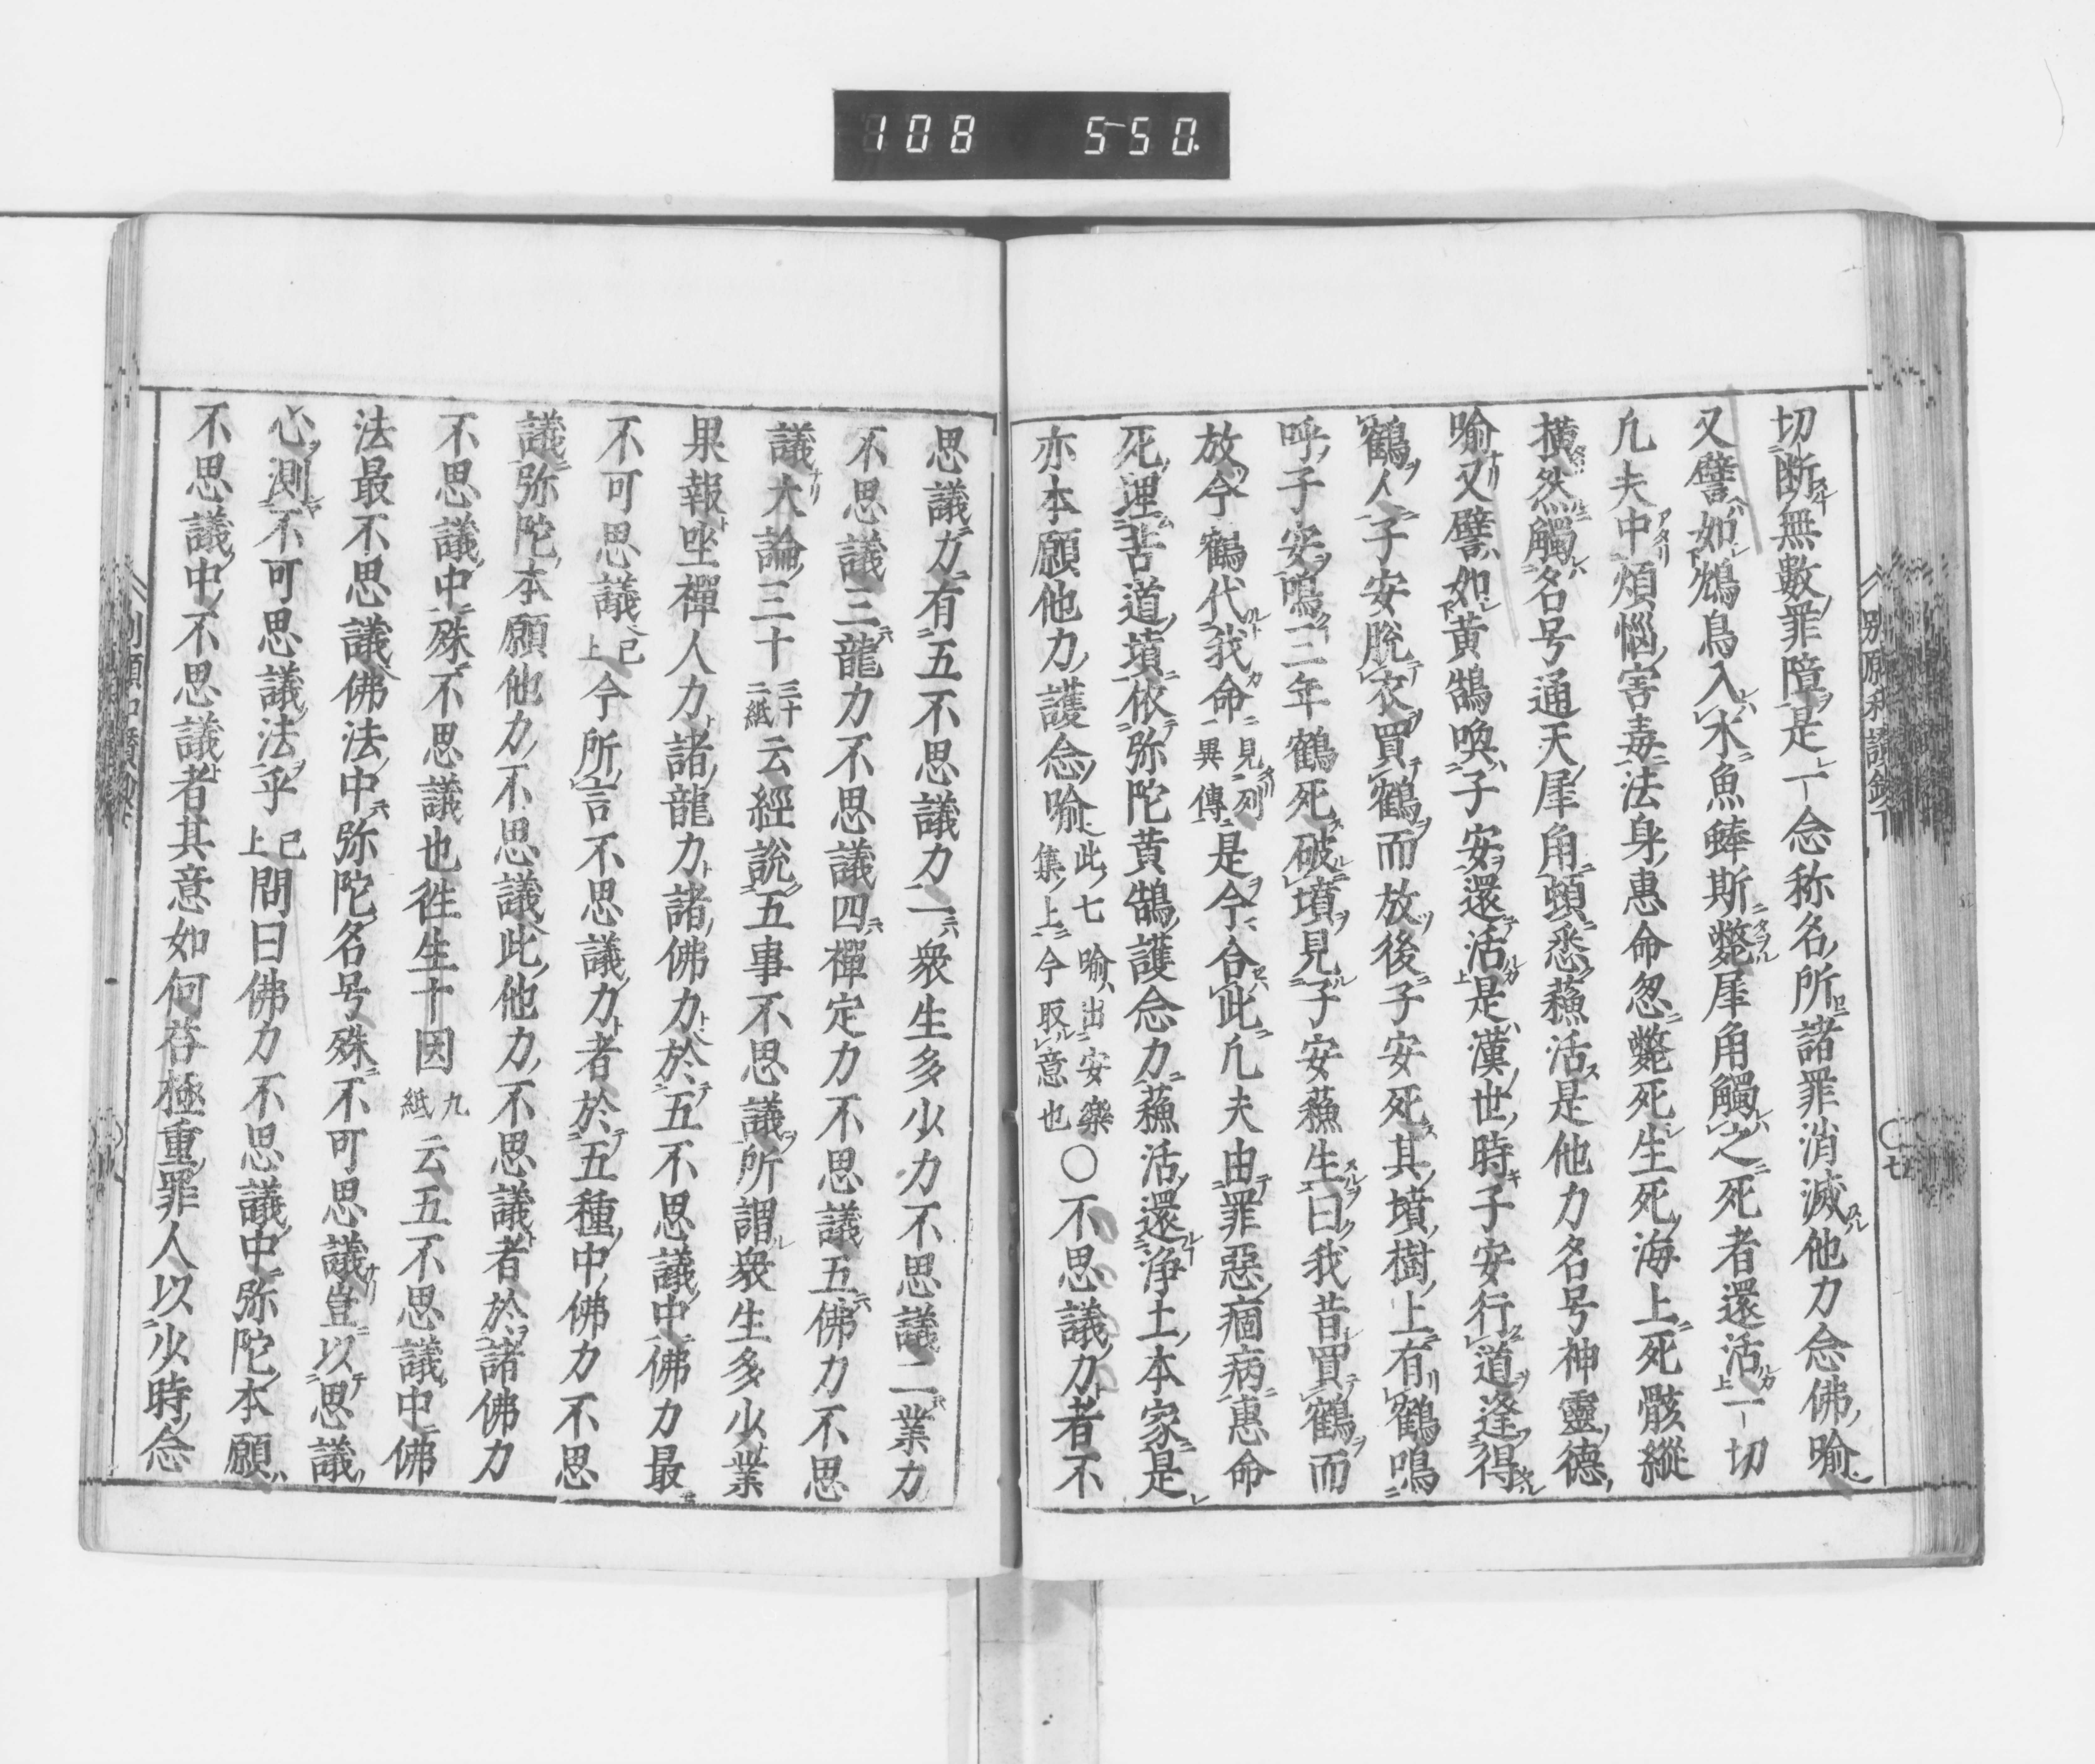 108 550
切断無數罪障是一念称名所諸罪消滅他力念佛喻
又譬如鴆鳥入水魚蚌斯斃犀角觸之死者還活一切
凢夫中煩惱害毒法身惠命忽斃死生死海上死骸縱
横然觸名号通天犀角頭悉蘓活是他力名号神靈德
喻又譬如黄鵠喚子安還活是漢世時子安行道逢得
鶴人子安脫衣買鶴而放後子安死其墳樹上有鶴鳴
呼子安鳴三年鶴死破墳見子安蘓生曰我昔買鶴而
放今鶴代我命見列異傳是今合此凢夫由罪惡痼病惠命
死埋苦道墳依弥陀黄鵠護念力蘓活還浄土本家是
亦本願他力護念喻此七喻出安樂集上今取意也〇不思議力者不
思議力有五不思議力一衆生多少力不思議二業力
不思議三龍力不思議四禪定力不思議五佛力不思
議大論三十三十二紙云經說五事不思議所謂衆生多少業
果報坐禪人力諸龍力諸佛力於五不思議中佛力最
不可思議已上今所言不思議力者於五種中佛力不思
議弥陀本願他力不思議此他力不思議者於諸佛力
不思議中殊不思議也徃生十因九紙云五不思議中佛
法最不思議佛法中弥陀名号殊不可思議豈以思議
心測不可思議法乎已上問曰佛力不思議中弥陀本願
不思議中不思議者其意如何荅極重罪人以少時念
別願和讃鈔下
七